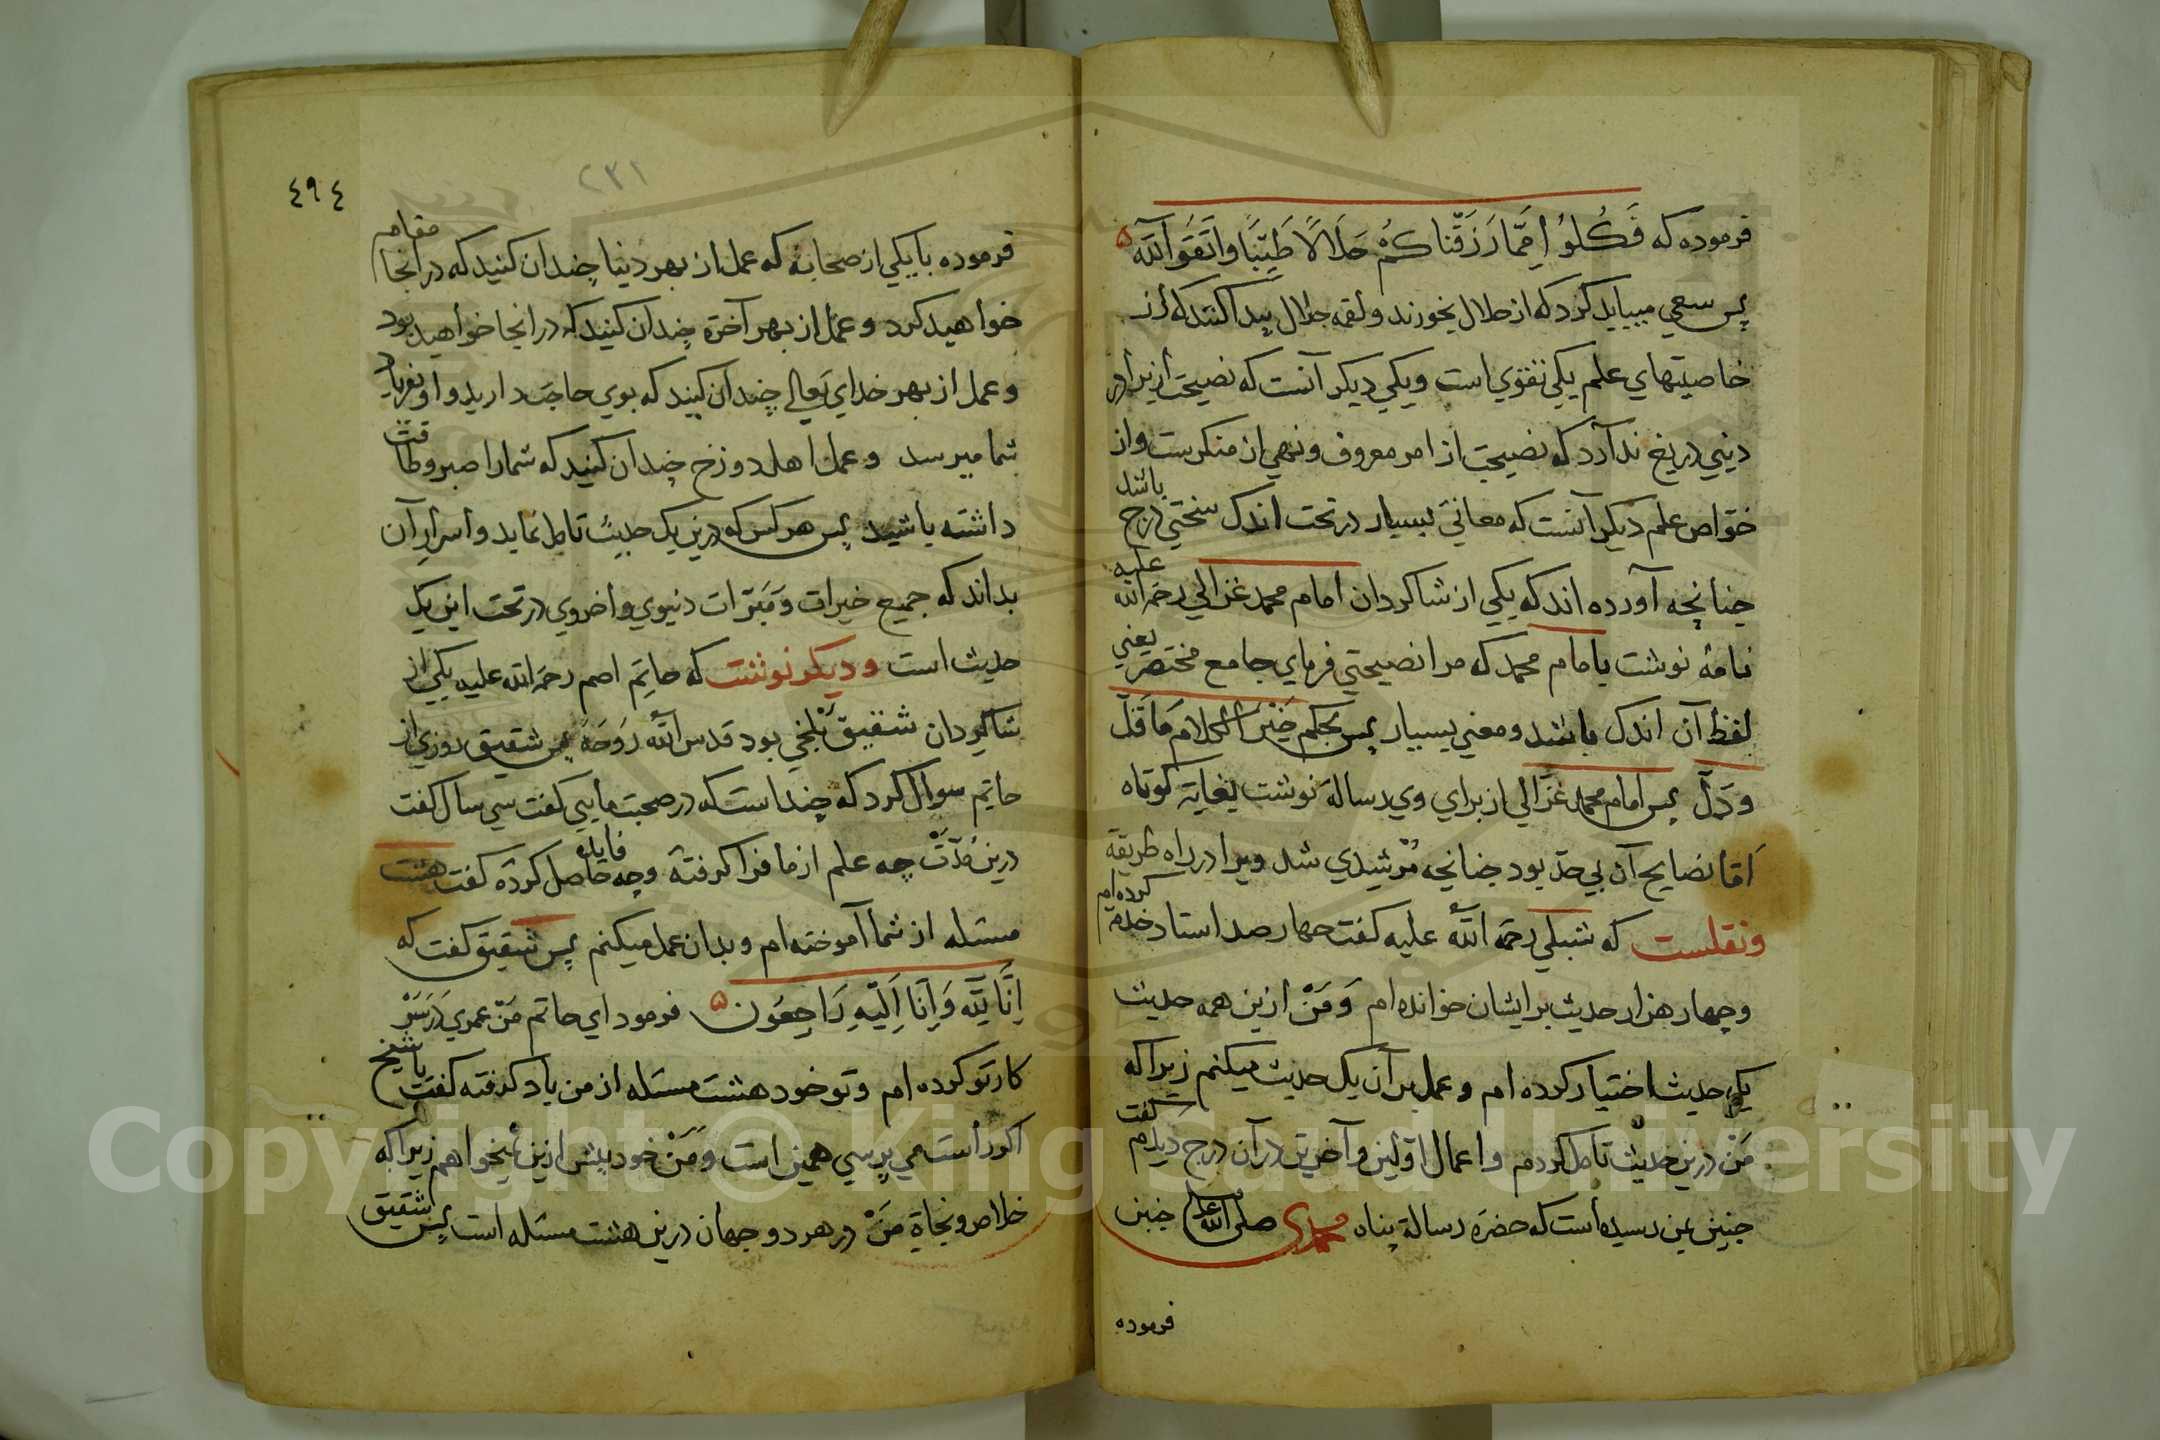 فرموده که فَكُلُوُ اِمِمَّا رَزَقْناكُمْ حَلَالًا طَيِّبًا وَاتَّقَوُ اللّٰهَ
پس سعی میباید کرد که از حلال بخورند و لقمه حلال پیدا کنند که از
خاصیتهای علم یکی تقوی است و یکی دیکر آنست که نصیحت از برادر
دینی دریغ ندارد که نصیحت از امر معروف و نهی از منکرست و از
خواص علم دیکر آنست که معانی بسیار در تحت اندک سختی درج باشد
چنانچه آورده اند که یکی از شاکردان امام محمد غزالی رحمة الله علیه
نامهٔ نوشت بامام محمد که مرا نصیحتی فرمای جامع مختصر یعنی
لفظ آن اندک باشد و معنی بسیار پس بحکم خَيْرَ الْكَلَامِ مَا قَلَّ
وَ دَلَّ پس امام محمد غزالی از برای وی رساله نوشت بغایة کوتاه
اَمّا نصایح آن بی حد بود چنانچه مُرشیدی شد ویرا در راه طریقة
ونقلست که شبلی رحمة اللّٰه علیه کفت چهار صد استاد خدمة کرده ام
و چهار هزار حدیث بر ایشان خوانده ام وَ مَنْ ازین همه حدیث
یک حدیث اختیار کرده ام و عمل بر آن یک حدیث میکنم زیرا که
مَنْ درین حدیث تامل کردم و اعمال اوّلین و آخرین در آن درج دیدم کفت
چنین بمن رسیده است که حضرة رسالة پناه محمدی صلی الله علیه چنین
فرموده
٤٩٤
٢٣١
فرموده با یکی از صحابه که عمل از بهر دنیا چندان کنید که در انجا مقام
خواهید کرد و عمل از بهر آخرة چندان کنید که در انجا خواهید بود
و عمل از بهر خدای تعالی چندان کنید که بوی حاجت دارید و او بفریاد
شما میرسد و عمل اهل دوزخ چندان کنید که شما را صبر و طاقت
داشته باشید پس هر کس که درین یک حدیث تامل نماید و اسرار آن
بداند که جمیع خیرات و مَبَرّات دنیوی و اخروی در تحت این یک
حدیث است و دیکر نوشت که حاتم اصم رحمة الله علیه یکی از
شاکردان شقیق بلخی بود قدس اللّٰه رُوحَهُ پس شقیق روزی از
حاتم سوال کرد که چند است که در صحبت مایی کفت سی سال کفت
درین مُدّت چه علم از ما فرا کرفتهٔ و چه فایده حاصل کردهٔ کفت هشت
مسئله از شما آموخته ام و بدان عمل میکنم پس شقیق کفت که
اِنَّا لِلّٰهِ وَ اِنَّا اِلَيْهِ رَاجِعُونَ فرمود ای حاتم مَنْ عمری دَرْ سَرْ
کار تو کرده ام و تو خود هشت مسئله از من یاد کرفته کفت یا شیخ
اکر راست می پرسی همین است وَ مَنْ خود بیش ازین نمیخواهم زیرا که
خلاص و نجاة مَنْ در هر دو جهان درین هشت مسئله است پس شقیق
Copyright © King Saud University